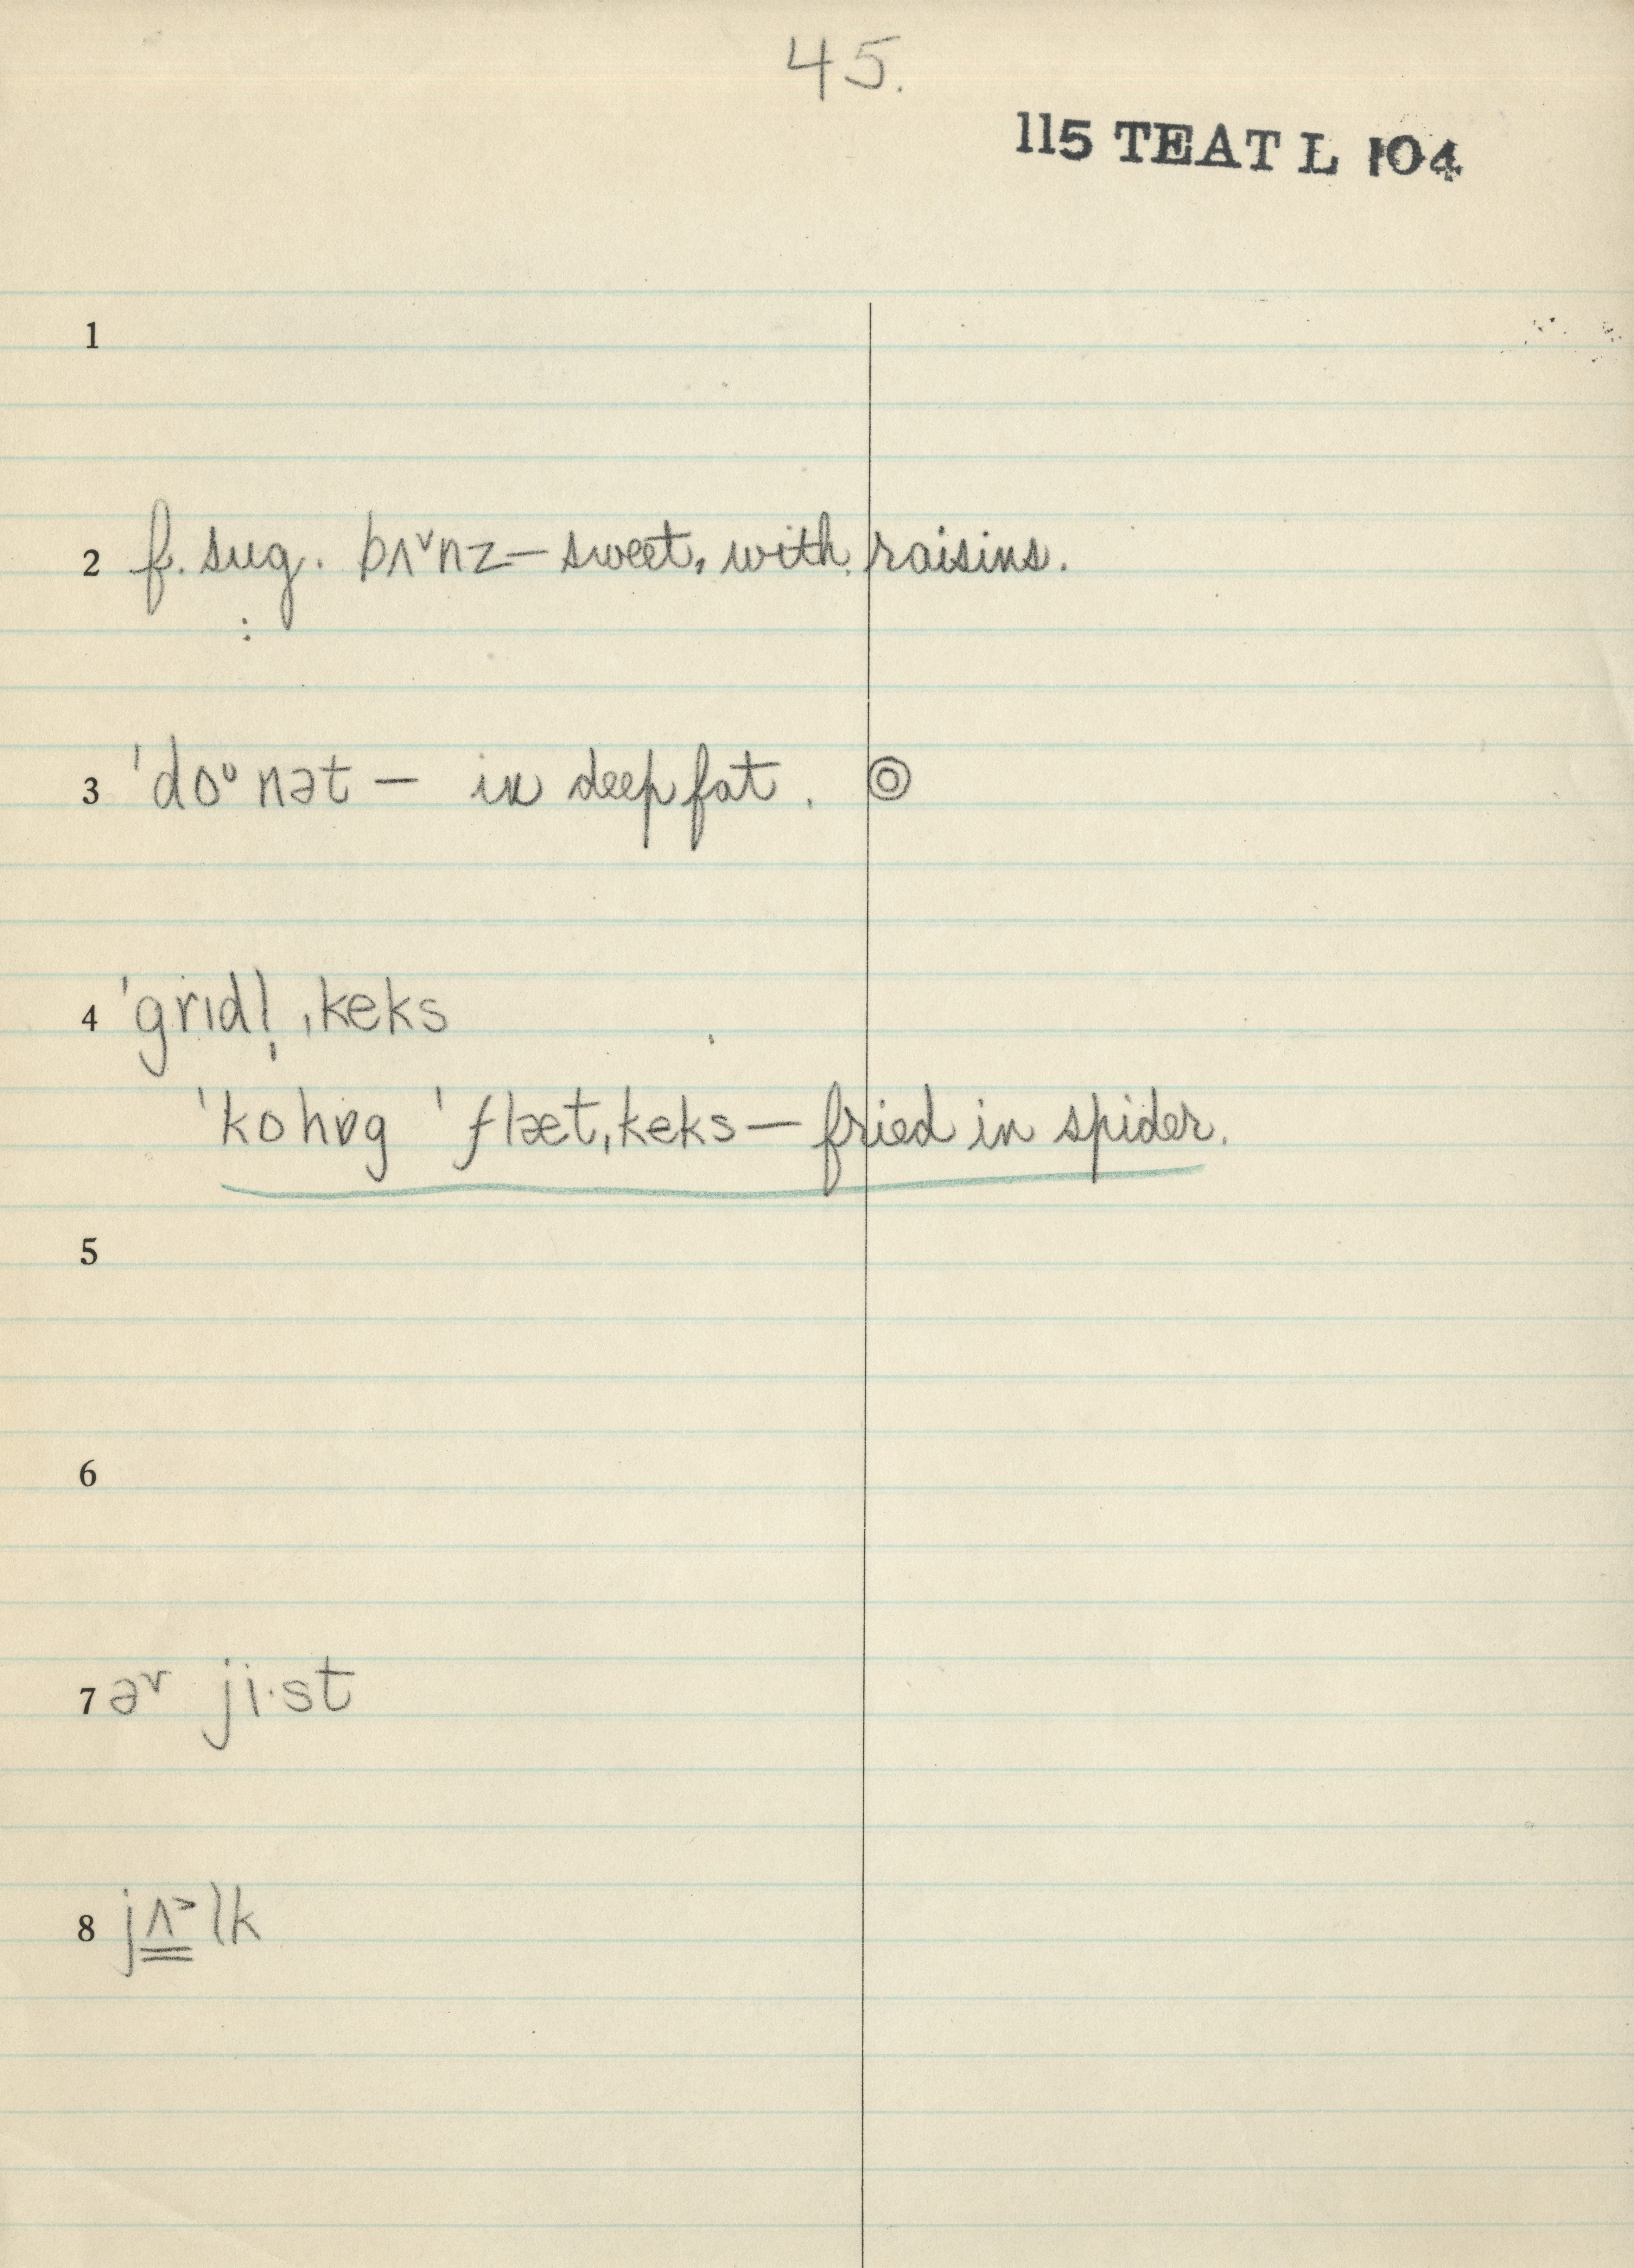 45.
115 TEAT L 104
1
2 f. sug. bʌ˅nz – sweet, with raisins.
:
3 ˈdoᶷnət – in deep fat. ◎
4 ˈgrɪdl̩ ˌkeks
ˈkohɒg ˈflæt ˌkeks – fried in spider.
5
6
7 ə˅ ji·st
8 jʌ˃lk